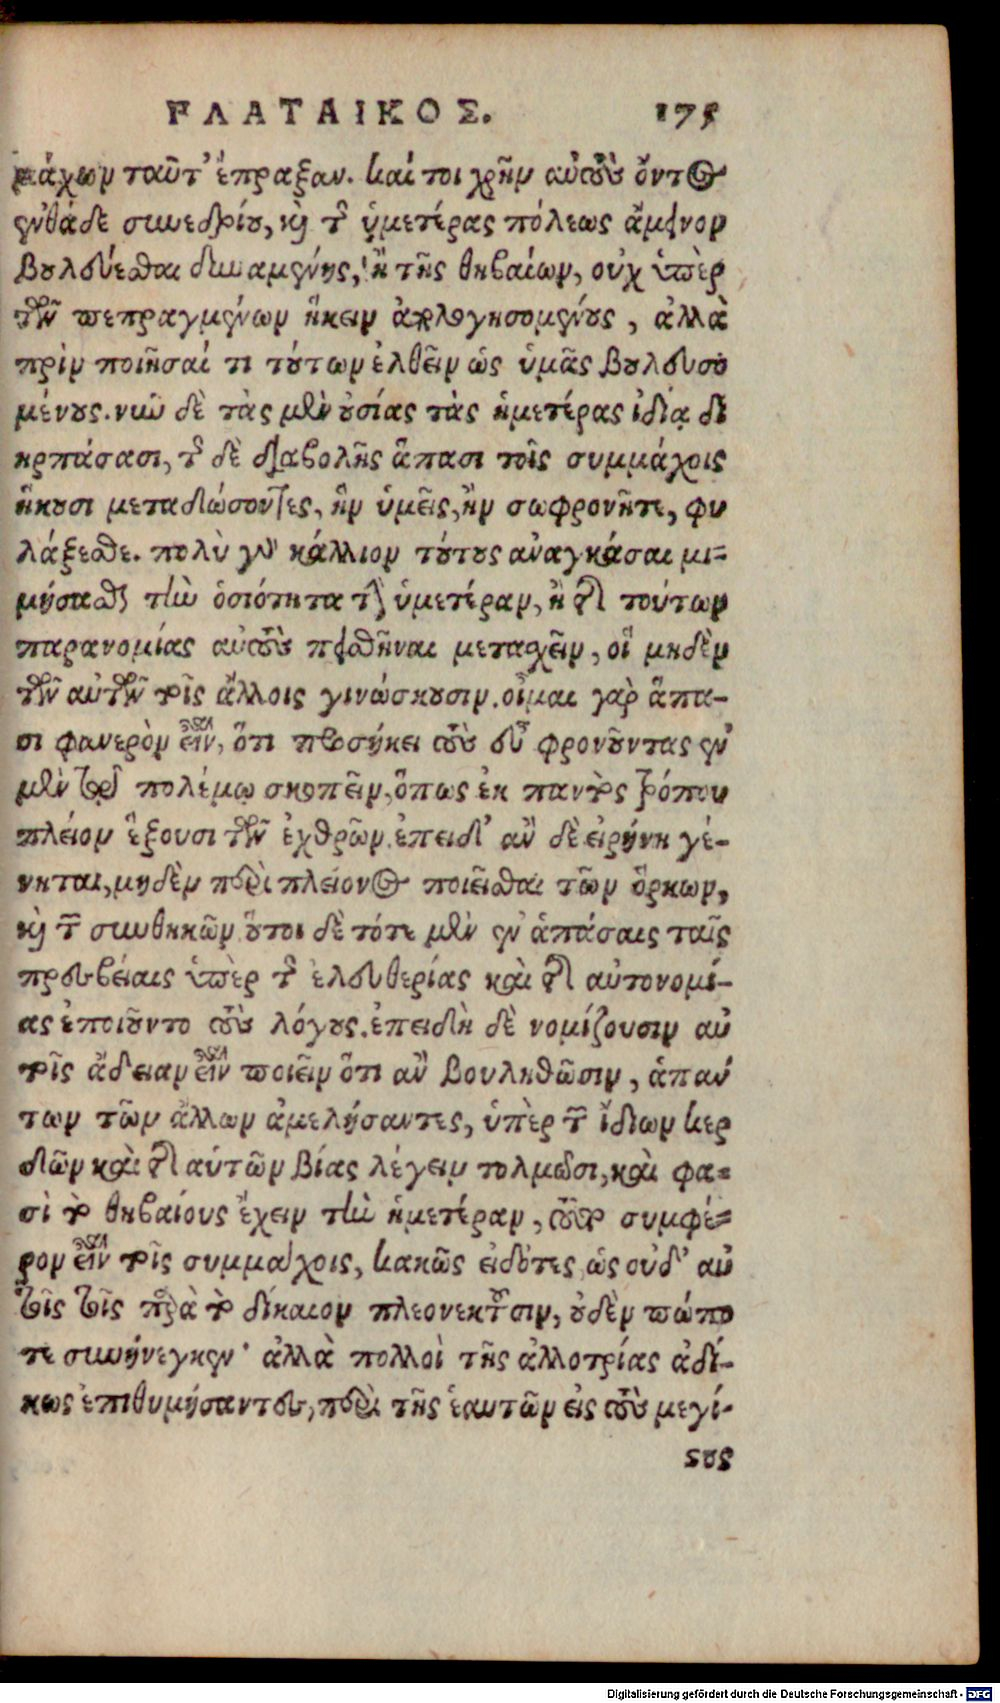 ΠΛΑΤΑΙΚΟΣ. 175
μάχων ταῦτ' ἔπραξαν. καί τοι χρῆν αὐτοὺς ὄντος
ἐνθάδε συνεδρίου, καὶ τῆς ὑμετέρας πόλεως ἄμεινον
βουλεύεσθαι δυναμένης, ἢ τῆς θηβαίων, οὐχ ὑπὲρ
τῶν πεπραγμένων ἥκειν ἀπολογησομένους, ἀλλὰ
πρὶν ποιῆσαί τι τούτων ἐλθεῖν ὡς ὑμᾶς βουλευσο
μένους. νῦν δὲ τὰς μὲν οὐσίας τὰς ἡμετέρας ἰδίᾳ δι
ηρπάσασι, τῆς δὲ διαβολῆς ἅπασι τοῖς συμμάχοις
ἥκουσι μεταδώσοντες, ἣν ὑμεῖς, ἢν σωφρονῆτε, φυ
λάξεσθε. πολὺ γὰρ κάλλιον τούτους ἀναγκάσαι μι-
μήσασθαι τὴν ὁσιότητα τὴν ὑμετέραν, ἢ τῆς τούτων
παρανομίας αὐτοὺς πεισθῆναι μετασχεῖν, οἳ μηδὲν
τῶν αὐτῶν τοῖς ἄλλοις γινώσκουσιν. οἶμαι γὰρ ἅπα-
σι φανερὸν εἶναι, ὅτι προσήκει τοὺς εὖ φρονοῦντας ἐν
μὲν τῷ πολέμῳ σκοπεῖν, ὅπως ἐκ παντὸς τρόπου
πλεῖον ἕξουσι τῶν ἐχθρῶν. ἐπειδ' ἂν δὲ εἰρήνη γέ-
νηται, μηδὲν περὶ πλείονος ποιεῖσθαι τῶν ὅρκων,
καὶ τῶν συνθηκῶν. οὗτοι δὲ τότε μὲν ἐν ἁπάσαις ταῖς
πρεσβείαις ὑπὲρ τῆς ἐλευθερίας καὶ τῆς αὐτονομί-
ας ἐποιοῦντο τοὺς λόγους. ἐπειδὴ δὲ νομίζουσιν αὑ
τοῖς ἄδειαν εἶναι ποιεῖν ὅτι ἂν βουληθῶσιν, ἁπάν
των τῶν ἄλλων ἀμελήσαντες, ὑπὲρ τῶν ἰδίων κερ
δῶν καὶ τῆς αὑτῶν βίας λέγειν τολμῶσι, καὶ φα-
σὶ τὸ θηβαίους ἔχειν τὴν ἡμετέραν, τοῦτο συμφέ-
ρον εἶναι τοῖς συμμάχοις, κακῶς εἰδότες ὡς οὐδ' αὐ
τοῖς τοῖς παρὰ τὸ δίκαιον πλεονεκτοῦσιν, οὐδὲν πώπο
τε συνήνεγκεν· ἀλλὰ πολλοὶ τῆς ἀλλοτρίας ἀδί-
κως ἐπιθυμήσαντες, περὶ τῆς ἑαυτῶν εἰς τοὺς μεγί-
στους
Digitalisierung gefördert durch die Deutsche Forschungsgemeinschaft - DFG